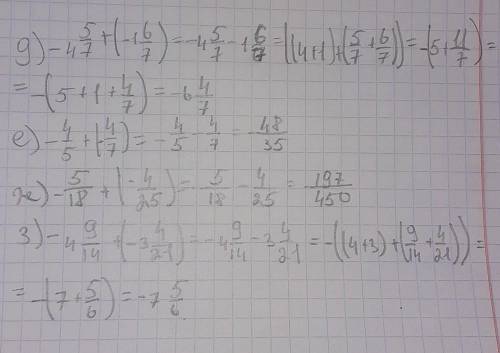 д) -4 5/7 + (-1 6/7) = -4 5/7 - 1 6/7 = ((4+1)+(5/7+6/7)) = -(5+11/7) =
= -(5+1+4/7) = -6 4/7
е) -4/5 + (-4/7) = -4/5 - 4/7 = -48/35
ж) -5/18 + (-4/25) = -5/18 - 4/25 = 197/450
з) -4 9/14 + (-3 4/21) = -4 9/14 - 3 4/21 = -((4+3)+(9/14+4/21)) =
= -(7+5/6) = -7 5/6